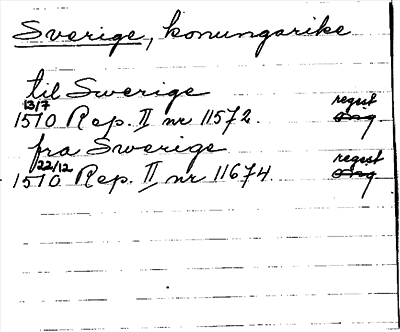 Sverige, konungarike
til Swerige
13/7
1510 Rep. II nr 11572. regist
orig
fra Swerige
22/12
1510 Rep. II nr 11674. regist
orig